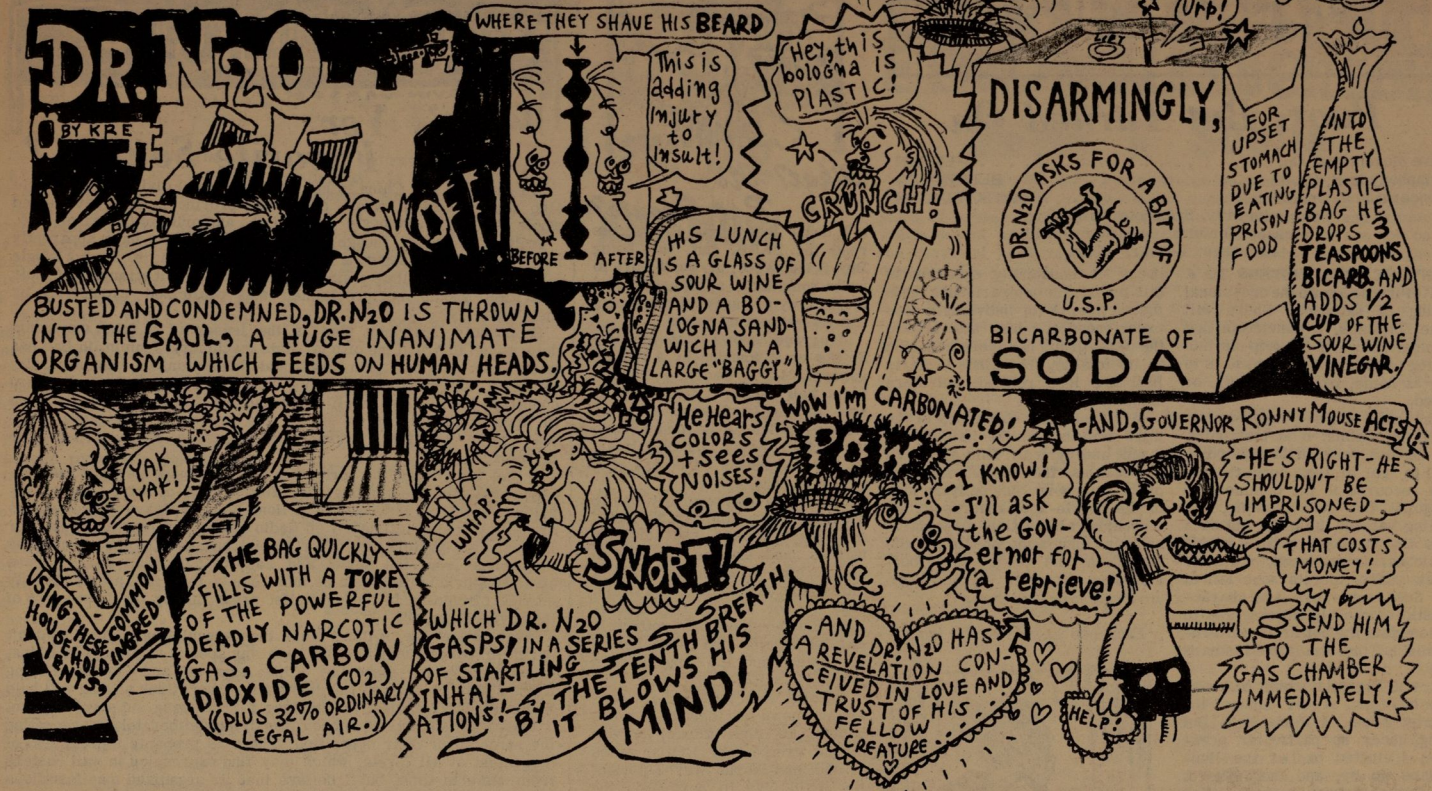 DR. N2O
BY KRE
SKOFF!
BUSTED AND CONDEMNED, DR. N2O IS THROWN
INTO THE GAOL, A HUGE INANIMATE
ORGANISM WHICH FEEDS ON HUMAN HEADS.
WHERE THEY SHAVE HIS BEARD
This is
adding
injury
to
insult!
BEFORE
AFTER
HIS LUNCH
IS A GLASS OF
SOUR WINE
AND A BO-
LOGNA SAND-
WICH IN A
LARGE "BAGGY"
Hey, this
bologna is
PLASTIC!
CRUNCH!
Urp!
DISARMINGLY,
DR. N2O ASKS FOR A BIT OF
U.S.P.
BICARBONATE OF
SODA
FOR
UPSET
STOMACH
DUE TO
EATING
PRISON
FOOD
INTO
THE
EMPTY
PLASTIC
BAG HE
DROPS 3
TEASPOONS
BICARB. AND
ADDS 1/2
CUP OF THE
SOUR WINE
VINEGAR.
YAK
YAK!
USING THESE COMMON
HOUSEHOLD INGRED-
IENTS,
THE BAG QUICKLY
FILLS WITH A TOKE
OF THE POWERFUL
DEADLY NARCOTIC
GAS, CARBON
DIOXIDE (CO2)
((PLUS 32% ORDINARY
LEGAL AIR.))
WHAP!
SNORT!
WHICH DR. N2O
GASPS! IN A SERIES
OF STARTLING
INHAL-
ATIONS!
He Hears
COLORS
+ sees
NOISES!
BY THE TENTH BREATH
IT BLOWS HIS
MIND!
WOW I'M CARBONATED!
POW!
-I Know!
-I'll ask
the Gov-
ernor for
a reprieve!
-AND DR. N2O HAS
A REVELATION CON-
CEIVED IN LOVE AND
TRUST OF HIS
FELLOW
CREATURE...
-AND, GOVERNOR RONNY MOUSE ACTS
-HE'S RIGHT-HE
SHOULDN'T BE
IMPRISONED-
THAT COSTS
MONEY!
SEND HIM
TO THE
GAS CHAMBER
IMMEDIATELY!
HELP!